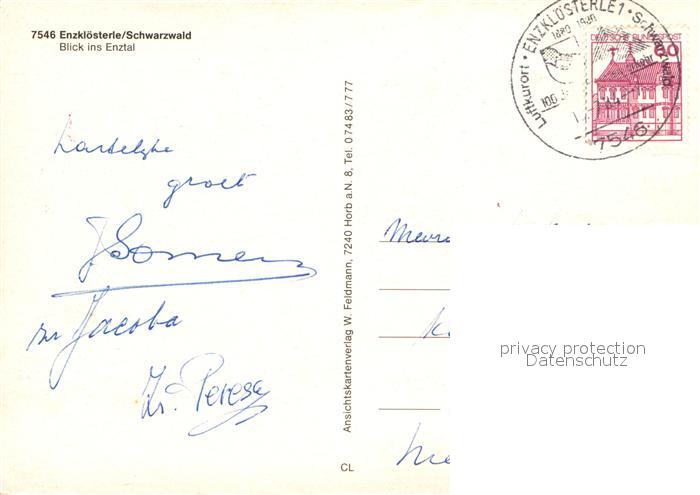 7546 Enzklösterle/Schwarzwald
Blick ins Enztal
groet
zr Jacoba
Zr. Perese
Ansichtskartenverlag W. Feldmann, 7240 Horb a.N. 8, Tel. 07483/777
CL
Luftkurort · ENZKLÖSTERLE 1 · Schwarzwald
1880 1980
100 Jahre
7546
DEUTSCHE BUNDESPOST
60
privacy protection
Datenschutz